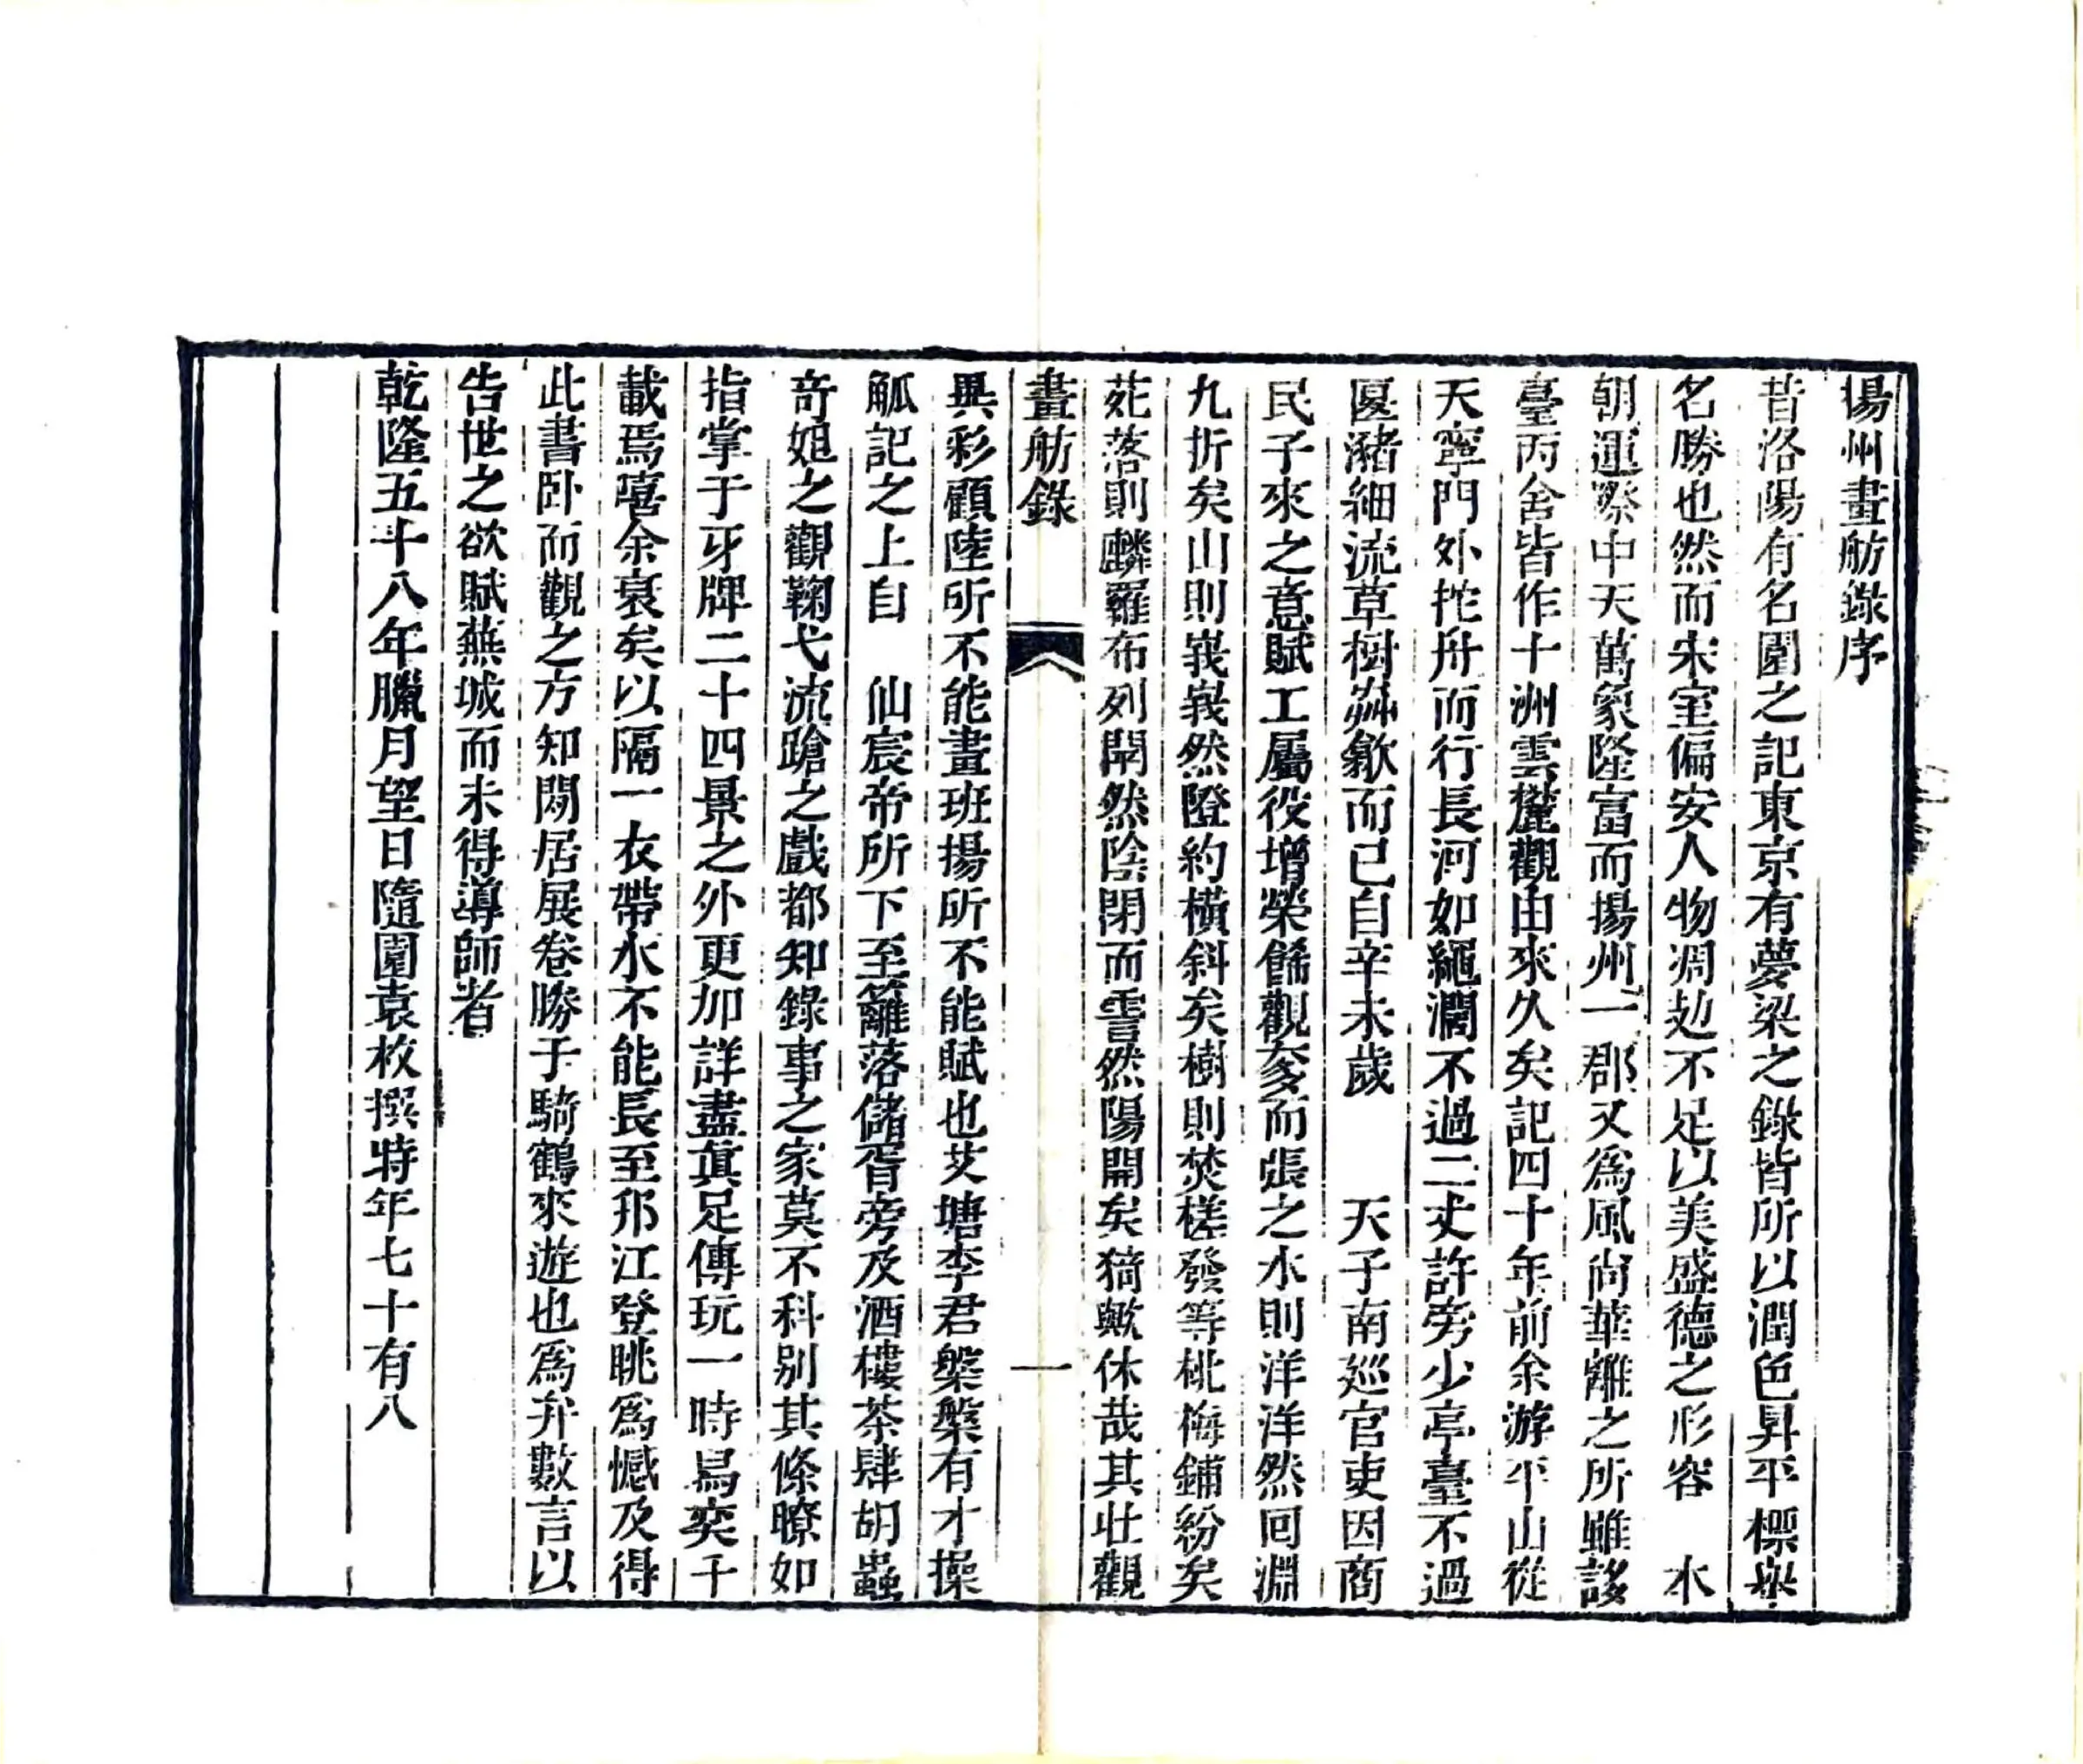 揚州畫舫錄序
昔洛陽有名園之記東京有夢梁之錄皆所以潤色昇平標舉
名勝也然而宋室偏安人物凋尠不足以美盛德之形容　本
朝運際中天萬象隆富而揚州一郡又爲風尙華離之所雖詼
臺丙舍皆作十洲雲麓觀由來久矣記四十年前余游平山從
天寧門外挓舟而行長河如繩濶不過二丈許旁少亭臺不過
匽瀦細流草樹歊而已自辛未歲　天子南巡官吏因商
民子來之意賦工屬役增榮餙觀奓而張之水則洋洋然回淵
九折矣山則峩峩然隥約橫斜矣樹則焚槎發等桃梅鋪紛矣
苑落則麟羅布列閛然陰閉而霅然陽開矣猗歟休哉其壯觀
畫舫錄
一
異彩顧陸所不能畫班揚所不能賦也艾塘李君槃槃有才操
觚記之上自　仙宸帝所下至籬落儲胥旁及酒樓茶肆胡蟲
奇妲之觀鞠弋流蹌之戲都知錄事之家莫不科别其條暸如
指掌于牙牌二十四景之外更加詳盡眞足傳玩一時舄奕千
載焉嘻余衰矣以隔一衣帶水不能長至邗江登眺爲憾及得
此書卧而觀之方知閒居展卷勝于騎鶴來遊也爲弁數言以
告世之欲賦蕪城而未得導師者
乾隆五十八年臘月望日隨園袁枚撰時年七十有八